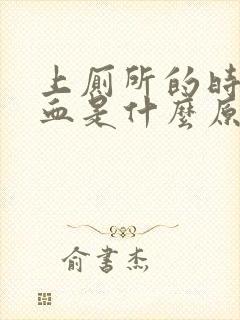 上厕所的时
血是什麼原
俞书杰